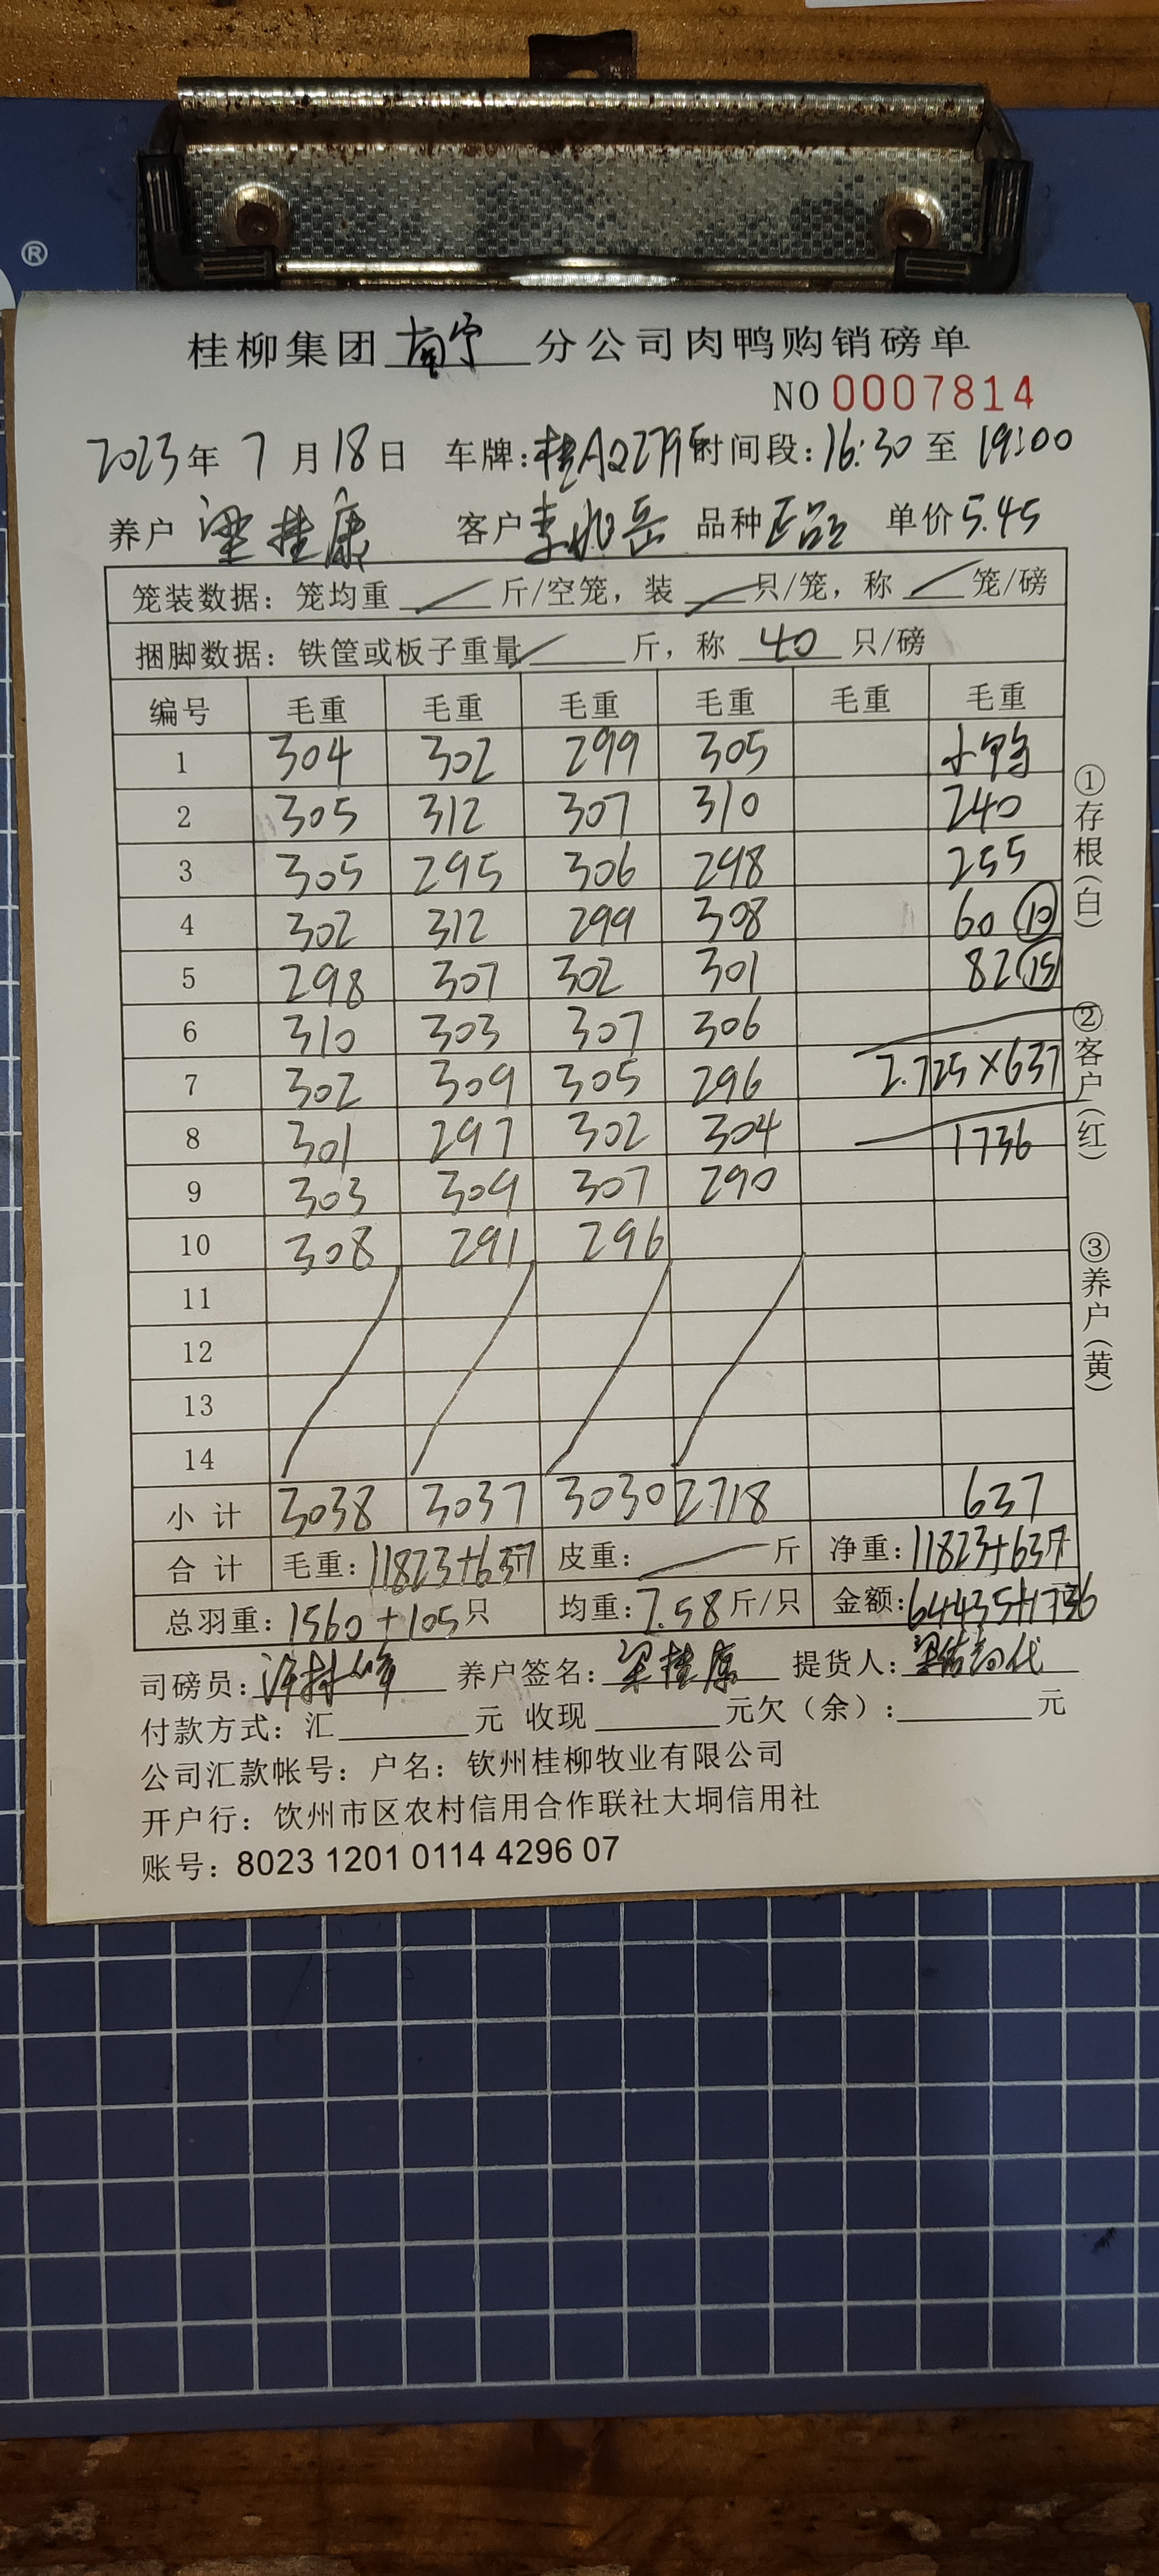 ®
桂柳集团南宁分公司肉鸭购销磅单
NO 0007814
2023年 7月18日 车牌:桂AQ2795 时间段:16:30至19:00
养户 梁桂康 客户 李兆岳 品种 正品 单价 5.45
笼装数据: 笼均重 斤/空笼, 装 只/笼, 称 笼/磅
捆脚数据: 铁筐或板子重量 斤, 称 40 只/磅
编号 毛重 毛重 毛重 毛重 毛重 毛重
1 304 302 299 305 小鸭
2 305 312 307 310 240
3 305 295 306 298 255
4 302 312 299 308 60 ⑩
5 298 307 302 301 82 ⑮
6 310 303 307 306
7 302 309 305 296 2.725×637
8 301 297 302 304 1736
9 303 309 307 290
10 308 291 296
11
12
13
14
小计 3038 3037 3030 2718 637
合计 毛重:11823+637斤 皮重: 斤 净重:11823+637斤
总羽重:1560+105只 均重:7.58斤/只 金额:64435+1736元
司磅员: 养户签名:梁桂康 提货人:
付款方式:汇 元 收现 元欠(余): 元
公司汇款帐号: 户名: 钦州桂柳牧业有限公司
开户行: 饮州市区农村信用合作联社大垌信用社
账号: 8023 1201 0114 4296 07
①存根(白)
②客户(红)
③养户(黄)